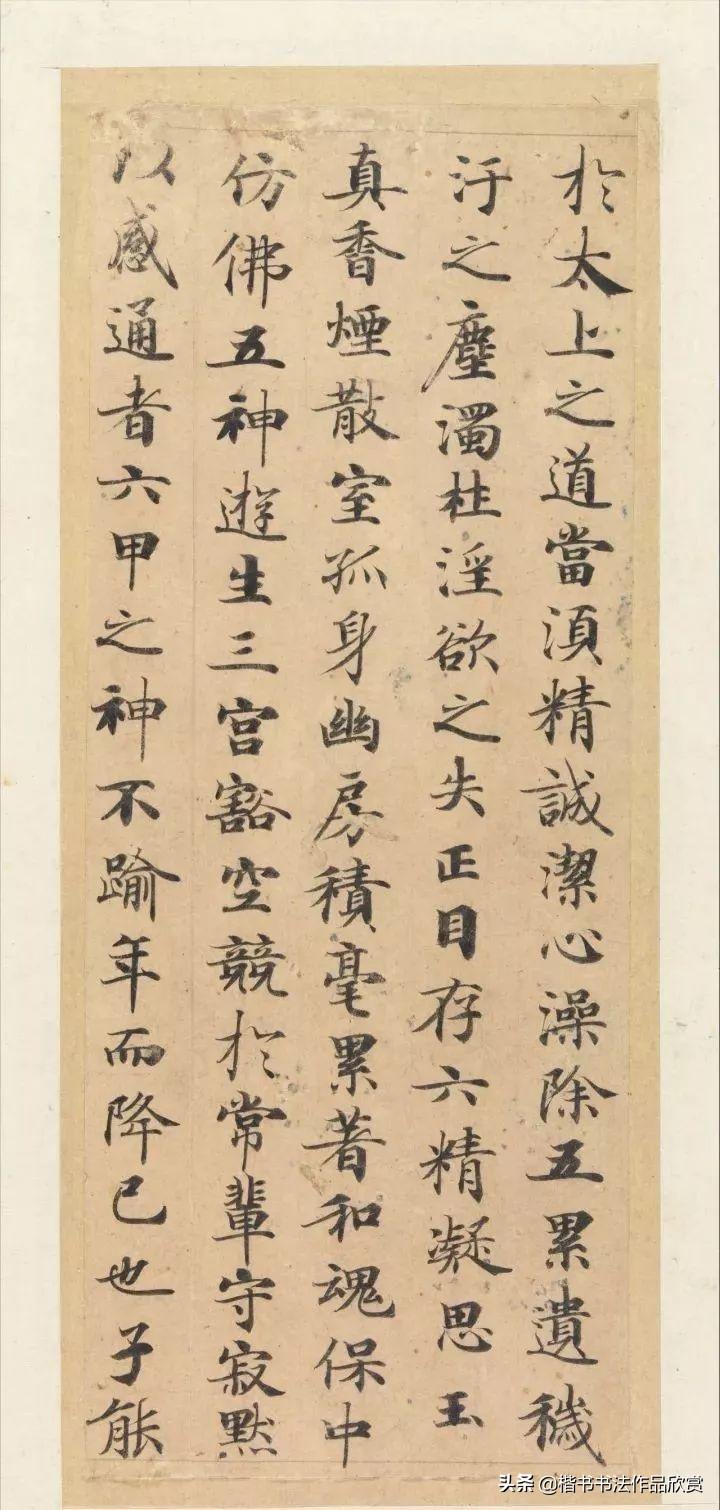 於太上之道當湏精誠潔心澡除五累遺穢
汙之塵濁杜淫欲之失正目存六精凝思玉
真香煙散室孤身幽房積毫累著和魂保中
仿佛五神遊生三宫豁空競於常輩守寂默
以感通者六甲之神不踰年而降已也子能
头条 @楷书书法作品欣赏